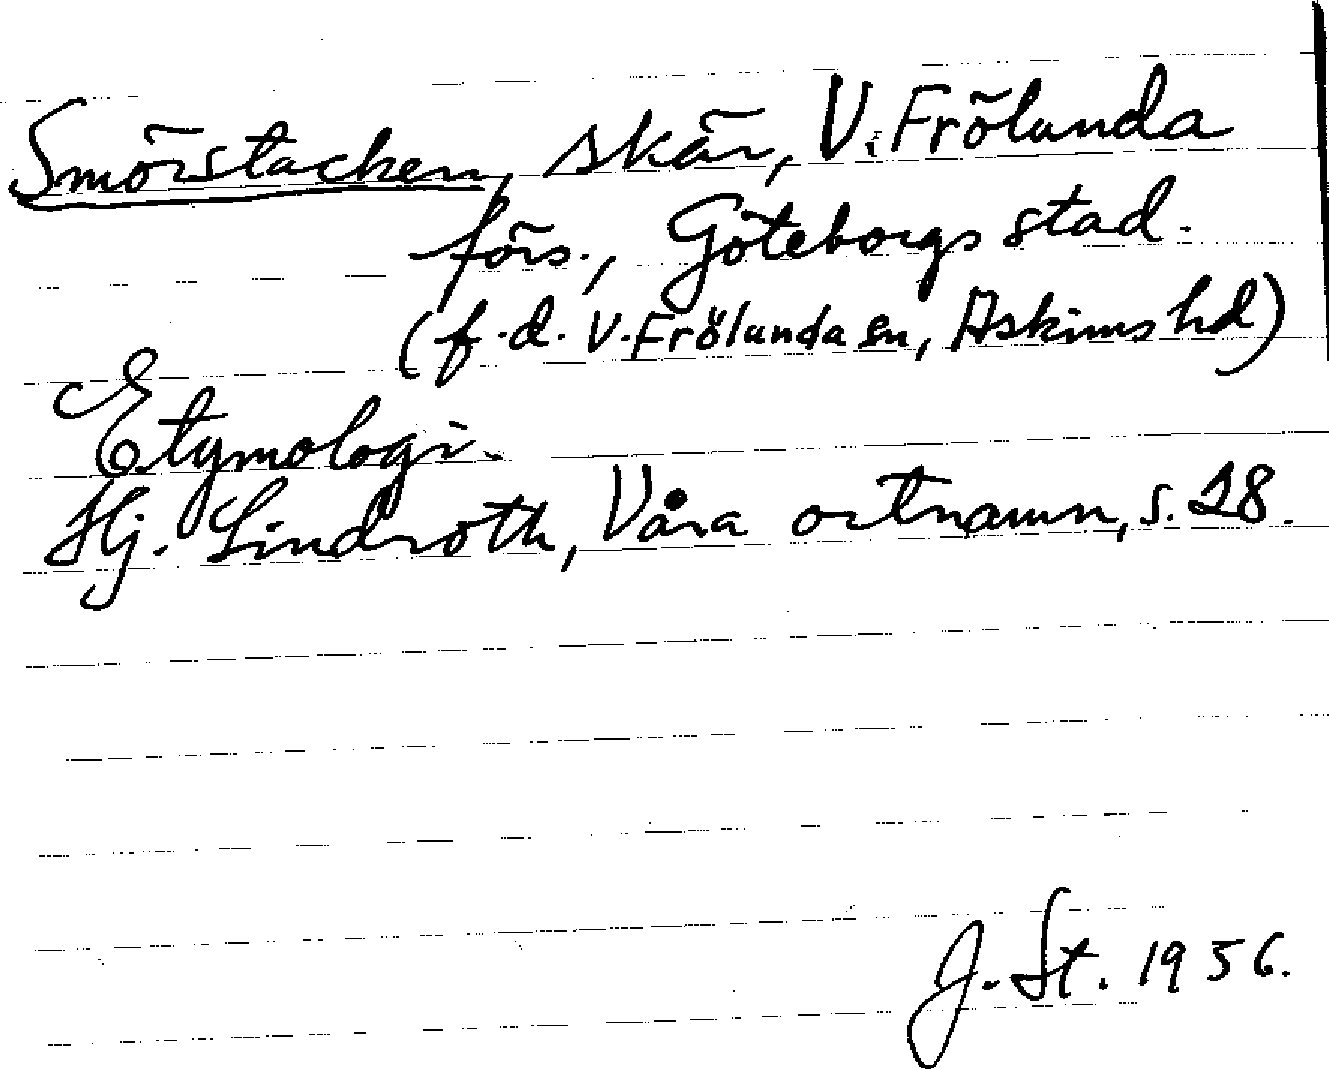 Smörstacken, skär, V. Frölunda
förs., Göteborgs stad.
(f.d. V. Frölunda sn, Askims hd)
Etymologi.
Hj. Lindroth, Våra ortnamn, s. 28.
J. St. 1956.